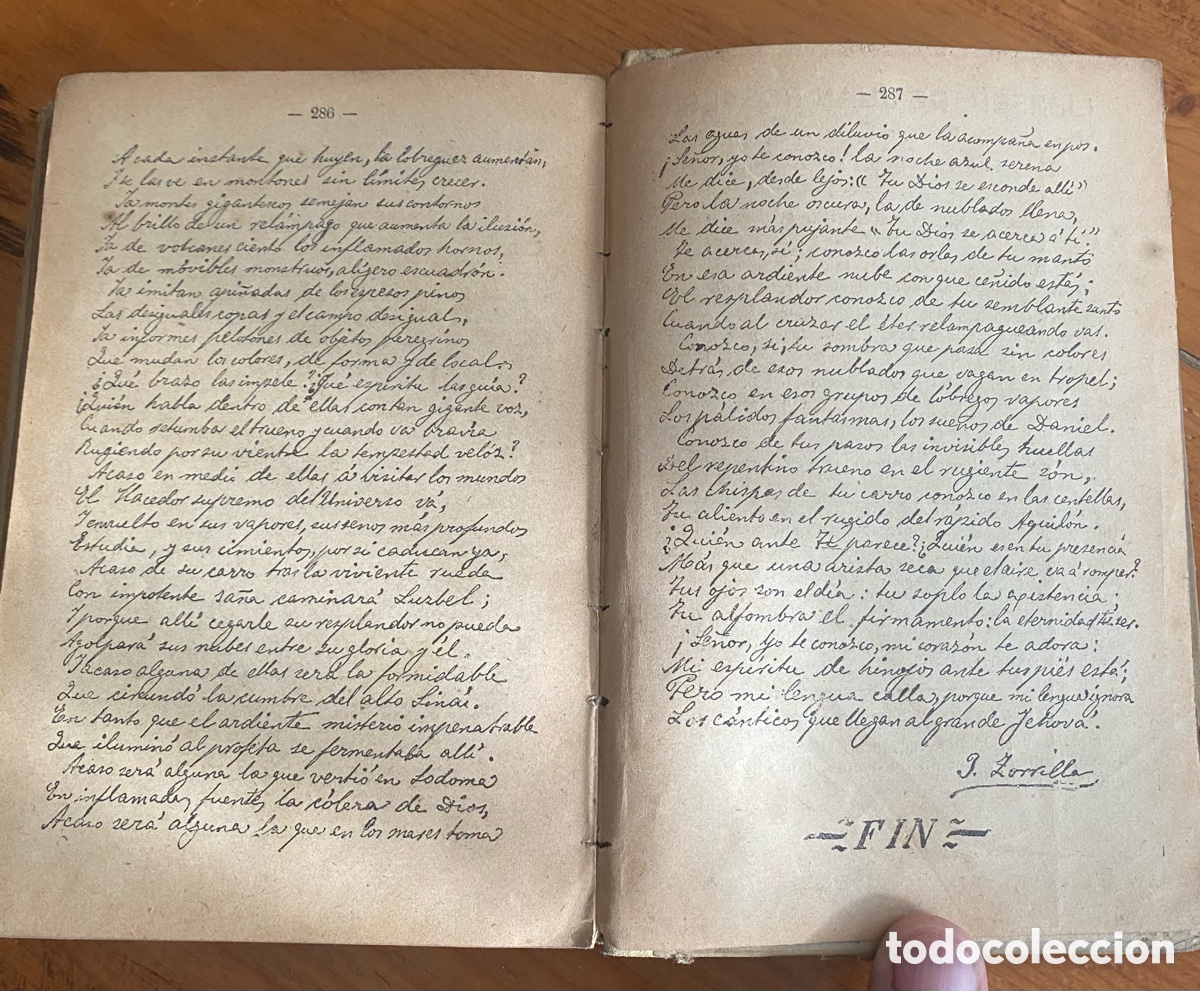 — 286 —
A cada instante que huyen, la lobreguez aumentan,
Y se las ve en montones sin límites crecer.
Ya montes gigantescos semejan sus contornos
Al brillo de un relámpago que aumenta la ilusión,
Ya de volcanes ciento los inflamados hornos,
Ya de móvibles monstruos, alígero escuadrón.
Ya imitan apiñadas de los espesos pinos
Las desiguales copas y el campo desigual,
Ya informes pelotones de objetos peregrinos
Que mudan los colores, de forma y de local.
¿Qué brazo las impele? ¿Qué espíritu las guía?
¿Quién habla dentro de ellas con tan gigante voz,
Cuando retumba el trueno y cuando va bravía
Rugiendo por su vientre la tempestad velóz?
Acaso en medio de ellas á visitar los mundos
El Hacedor supremo del Universo vá,
Y envuelto en sus vapores, sus senos más profundos
Estudia, y sus cimientos, por si caducan ya,
Acaso de su carro tras la viviente rueda
Con impotente saña caminará Luzbel;
Y porque allí cegarle su resplandor no pueda
Agolpará sus nubes entre su gloria y él.
Y acaso alguna de ellas será la formidable
Que circundó la cumbre del alto Sinaí.
En tanto que el ardiente misterio impenetrable
Que iluminó al profeta se fermentaba allí.
Acaso será alguna la que vertió en Sodoma
En inflamadas fuentes la cólera de Dios,
Acaso será alguna la que en los mares toma
— 287 —
Las aguas de un diluvio que la acompaña en pos.
¡Señor, yo te conozco! la noche azul serena
Me dice, desde lejos: "Tu Dios se esconde allí"
Pero la noche oscura, la de nublados llena,
Me dice más pujante "Tu Dios se acerca á tí."
Te acercas, sí; conozco las orlas de tu manto
En esa ardiente nube con que ceñido estás;
El resplandor conozco de tu semblante santo
Cuando al cruzar el éter relampagueando vas.
Conozco, sí, tu sombra que pasa sin colores
Detrás de esos nublados que vagan en tropel;
Conozco en esos grupos de lóbregos vapores
Los pálidos fantasmas, los sueños de Daniel.
Conozco de tus pasos las invisibles huellas
Del repentino trueno en el rugiente són,
Las chispas de tu carro conozco en las centellas,
Tu aliento en el rugido del rápido Aquilón.
¿Quién ante Ti parece? ¿Quién es en tu presencia
Más que una arista seca que el aire vá á romper?
Tus ojos son el día: tu soplo la existencia:
Tu alfombra el firmamento: la eternidad tu ser.
¡Señor, yo te conozco, mi corazón te adora:
Mi espíritu de hinojos ante tus piés está;
Pero mi lengua calla, porque mi lengua ignora
Los cánticos que llegan al grande Jehová.
J. Zorrilla
FIN
todocoleccion